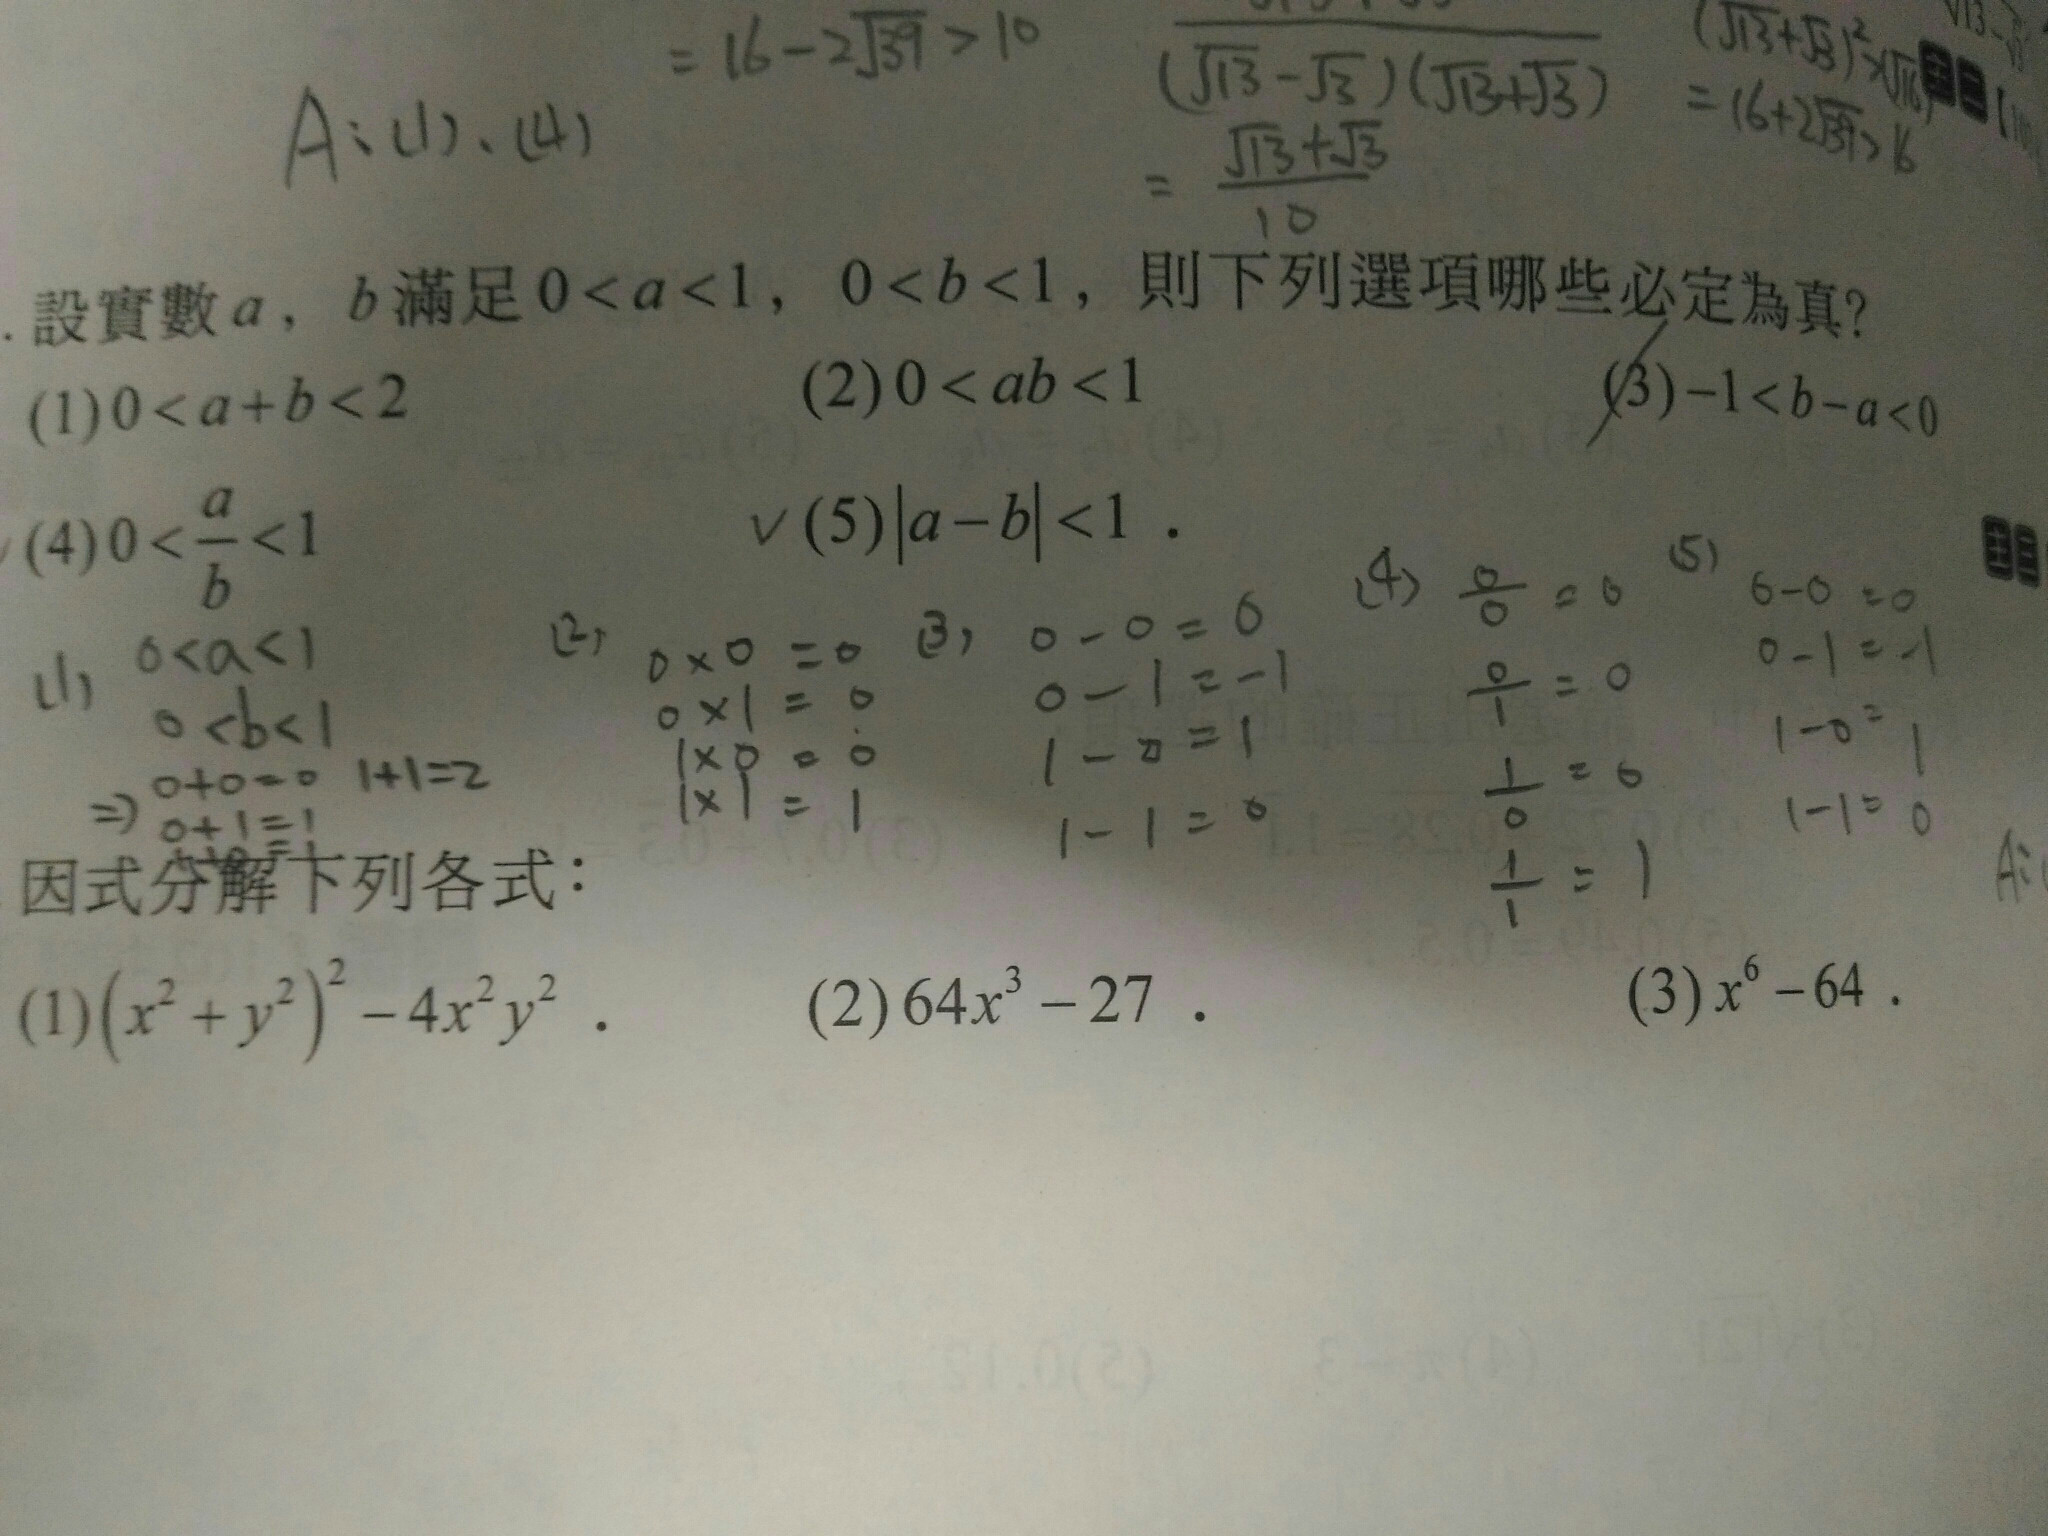 = 16 - 2√39 > 10
(√13 - √3)(√13 + √3)
(√13 + √3)² > (√16)
= 16 + 2√39 > 16
A: (1)、(4)
= (√13 + √3)/10
設實數 a，b 滿足 0 < a < 1，0 < b < 1，則下列選項哪些必定為真？
(1) 0 < a + b < 2 (2) 0 < ab < 1 (3) -1 < b - a < 0
(4) 0 < a/b < 1 ∨ (5) |a - b| < 1．
(1) 0 < a < 1
0 < b < 1
⇒ 0 + 0 = 0 1 + 1 = 2
0 + 1 = 1
(2) 0 × 0 = 0
0 × 1 = 0
1 × 0 = 0
1 × 1 = 1
(3) 0 - 0 = 0
0 - 1 = -1
1 - 0 = 1
1 - 1 = 0
(4) 0/0 = 0
0/1 = 0
1/0 = 0
1/1 = 1
(5) 0 - 0 = 0
0 - 1 = -1
1 - 0 = 1
1 - 1 = 0
A:
因式分解下列各式：
(1) (x² + y²)² - 4x²y²． (2) 64x³ - 27． (3) x⁶ - 64．